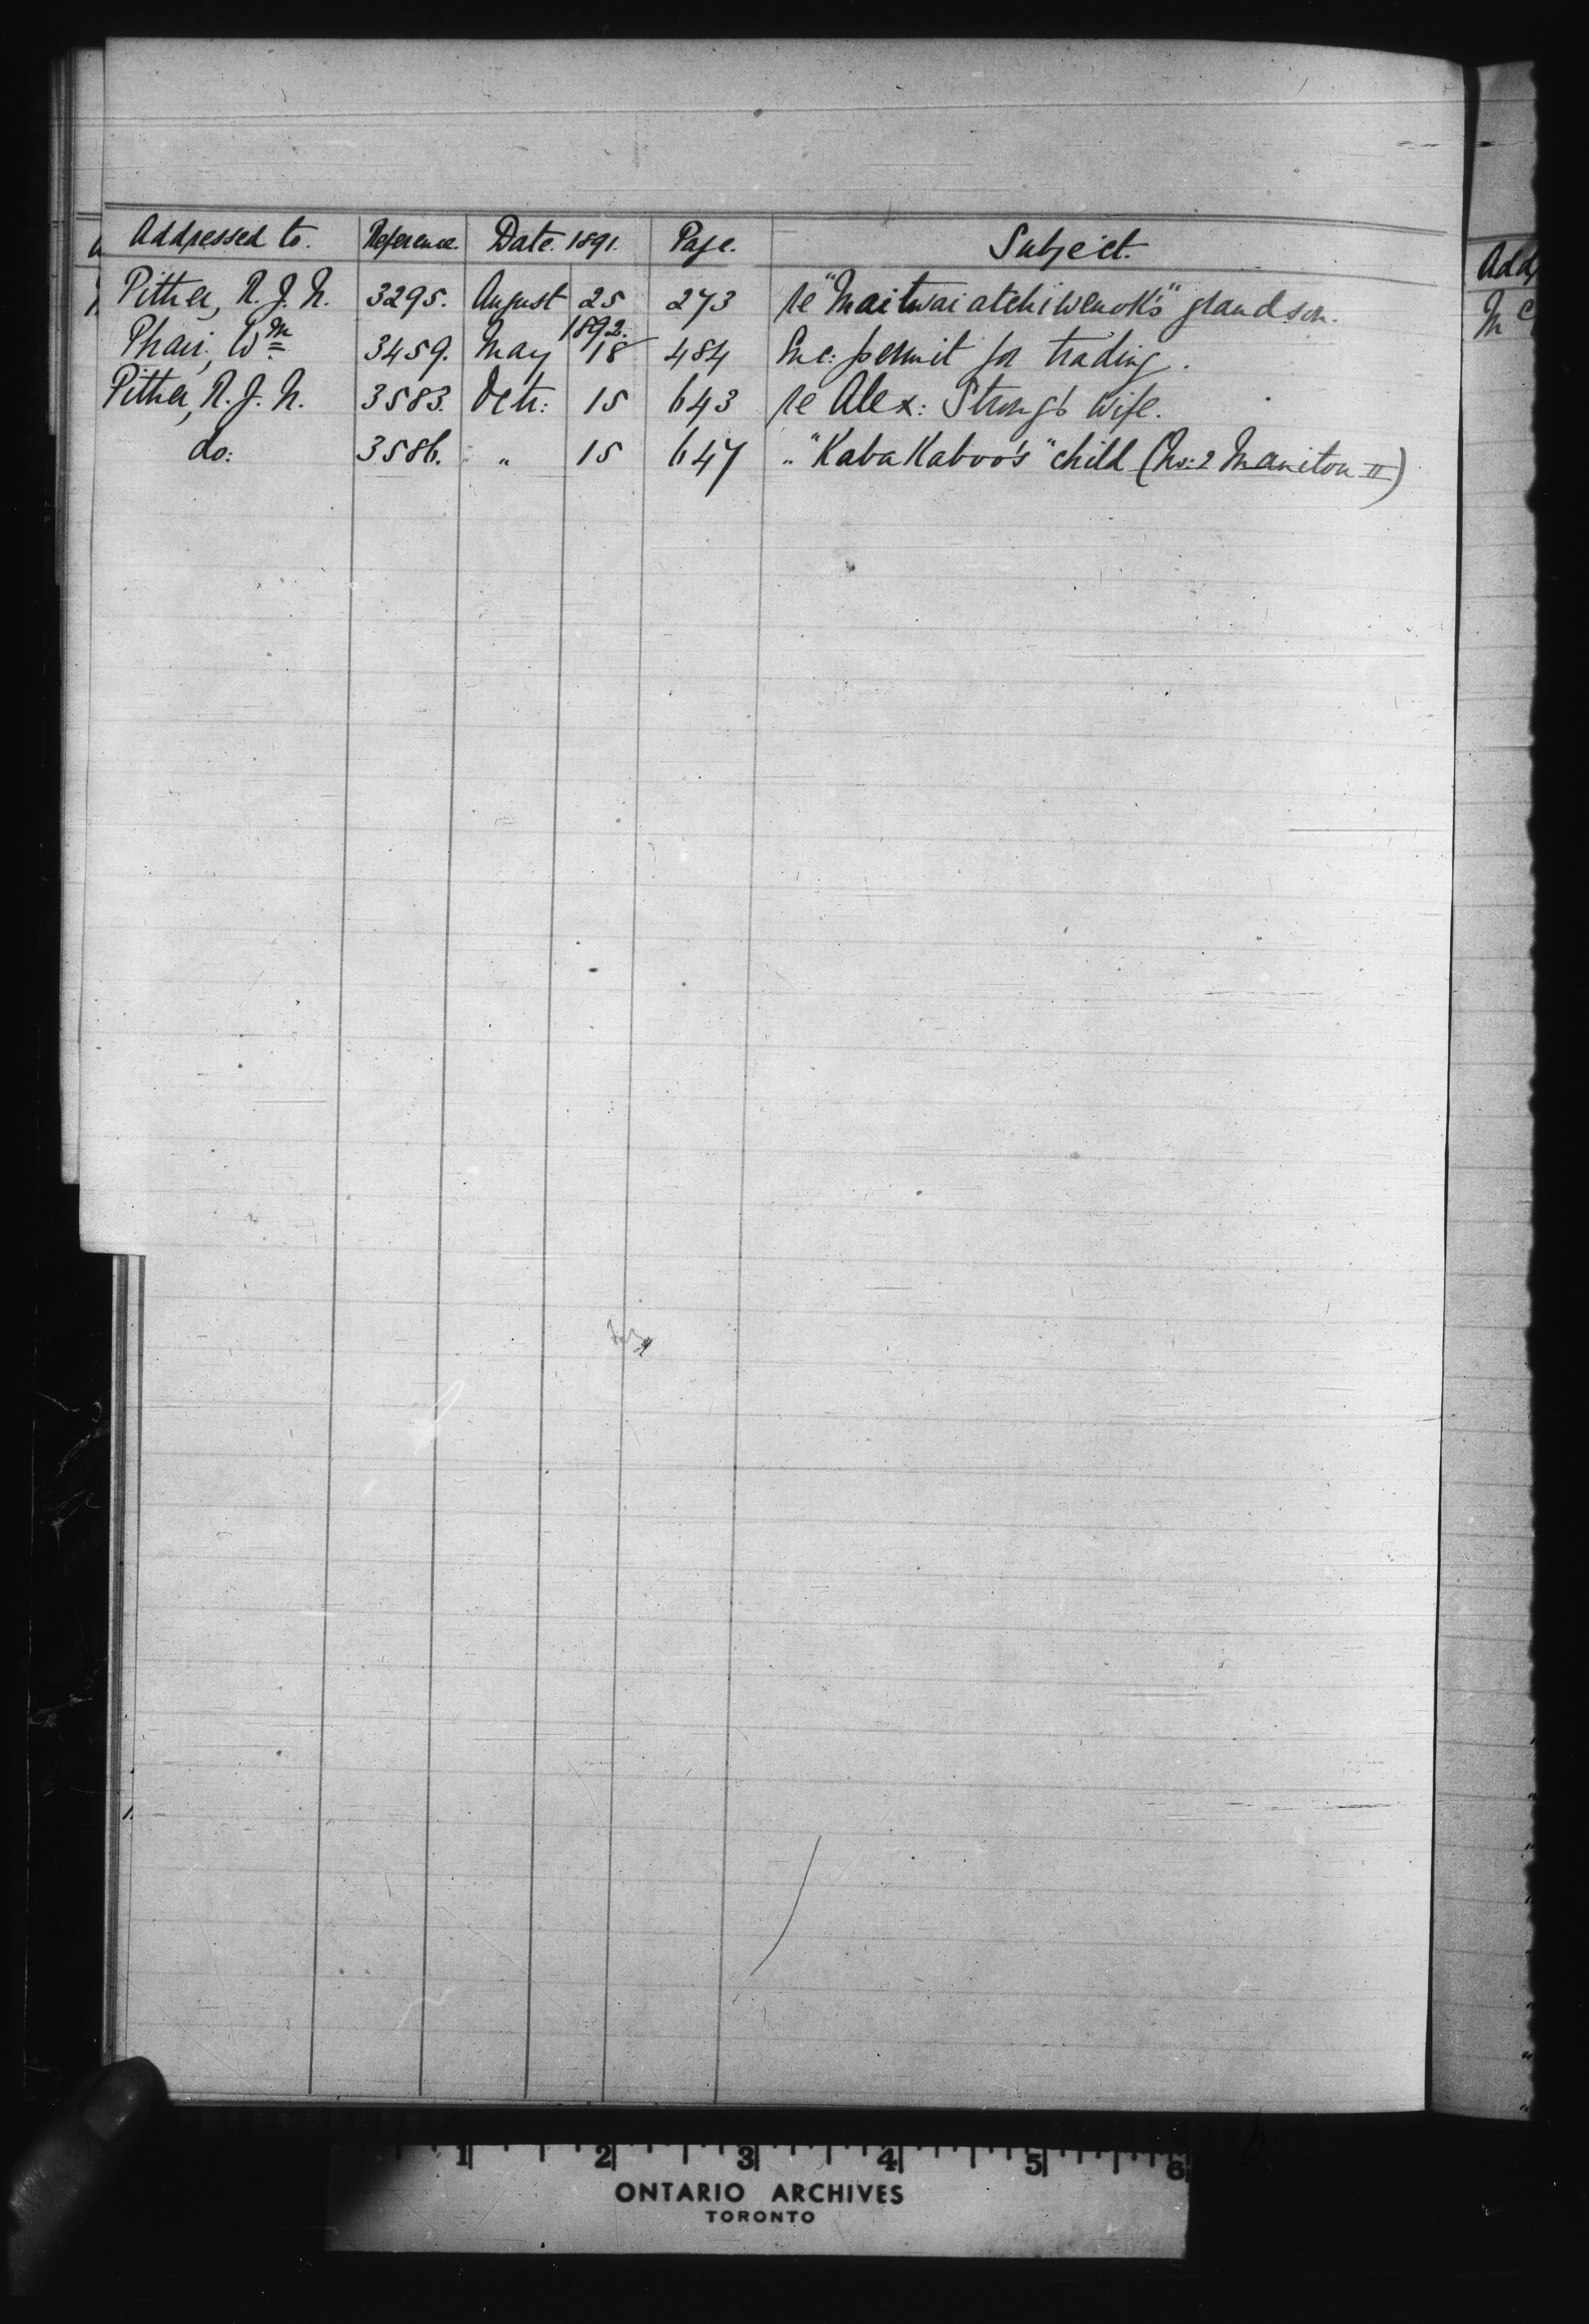 Addressed to. Reference. Date. 1891. Page. Subject.
Pither, R. J. N. 3295. August 25 273 re "Maitwaiatchiwenok's" grandson.
1892.
Phair, Wm 3459. May 18 484 Enc: permit for trading.
Pither, R. J. N. 3583. Octr: 15 643 re Alex: Strong's wife.
do: 3586. " 15 647 " "KabaKaboo's" child (No: 2 Manitou II)
Add
Mc
1 2 3 4 5 6
ONTARIO ARCHIVES
TORONTO